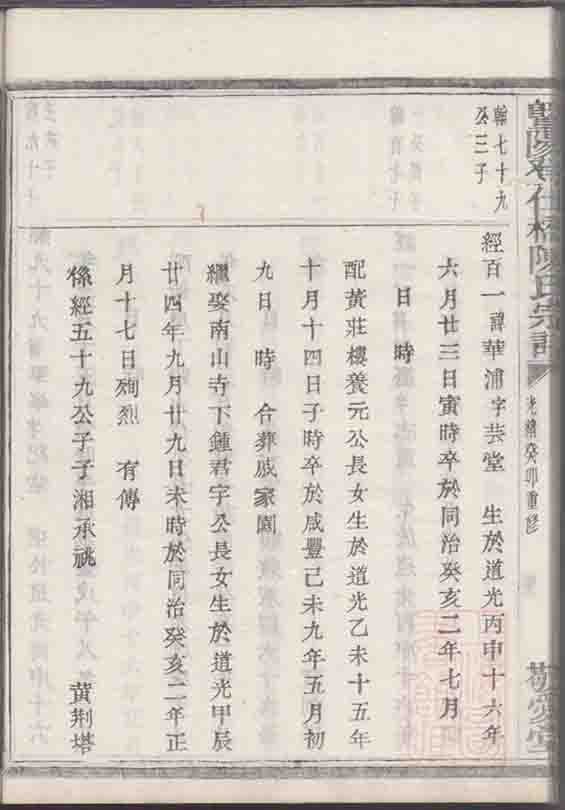 暨陽
仕橋陳氏宗譜
光緒癸卯重修
敬愛堂
翰七十九
公三子
經百一諱華浦字芸堂　生於道光丙申十六年
六月廿三日寅時卒於同治癸亥二年七月
日　時
配黃莊樓養元公長女生於道光乙未十五年
十月十四日子時卒於咸豐己未九年五月初
九日　時　合葬戚家園
繼娶南山寺下鍾君字公長女生於道光甲辰
廿四年九月廿九日未時於同治癸亥二年正
月十七日殉烈　有傳
係經五十九公子子湘承祧　黃荆塔